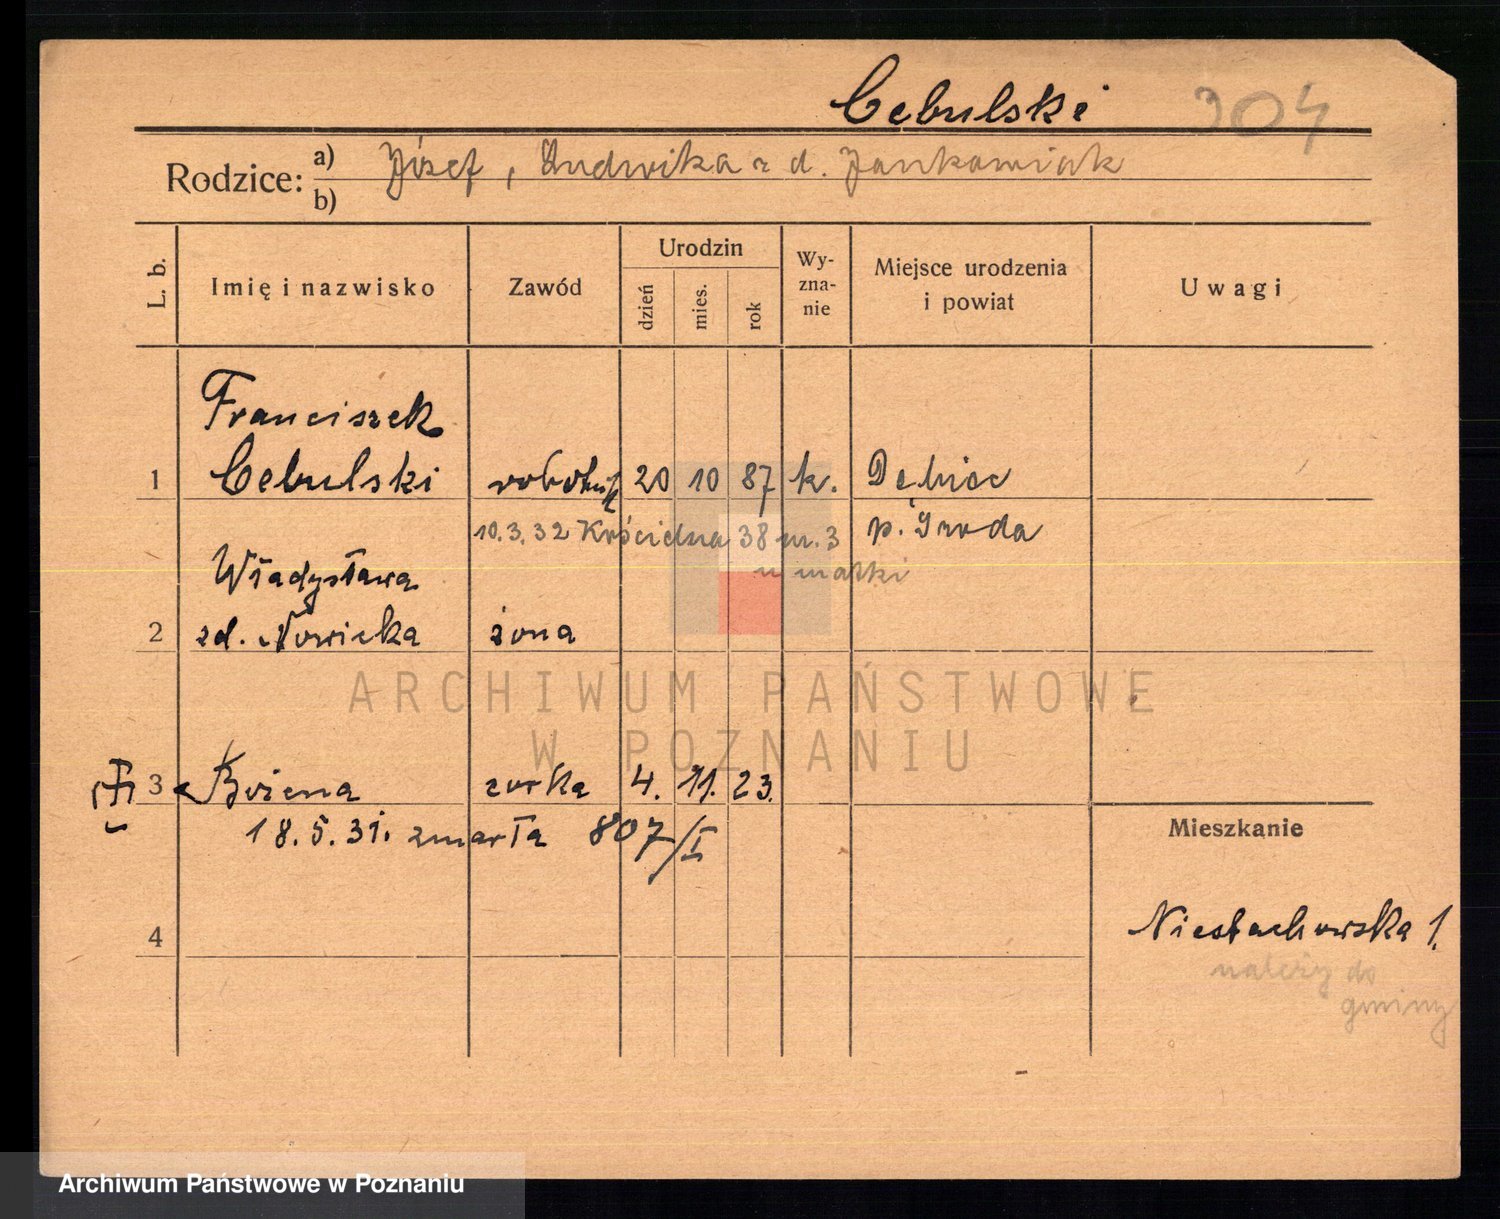 Cebulski 304
Rodzice: a) Józef, Ludwika z d. Jankowiak
b)
L. b. Imię i nazwisko Zawód Urodzin dzień mies. rok Wyznanie Miejsce urodzenia i powiat Uwagi
Franciszek
1 Cebulski robotnik 20 10 87 k. Dębiec
10.3.32 Kościelna 38 m. 3 p. Środa
Władysława u matki
2 zd. Nowicka żona
ARCHIWUM PAŃSTWOWE
W POZNANIU
3 Bożena córka 4. 11. 23.
18.5.31. zmarła 807/I
Mieszkanie
4 Niestachowska 1.
należy do
gminy
Archiwum Państwowe w Poznaniu